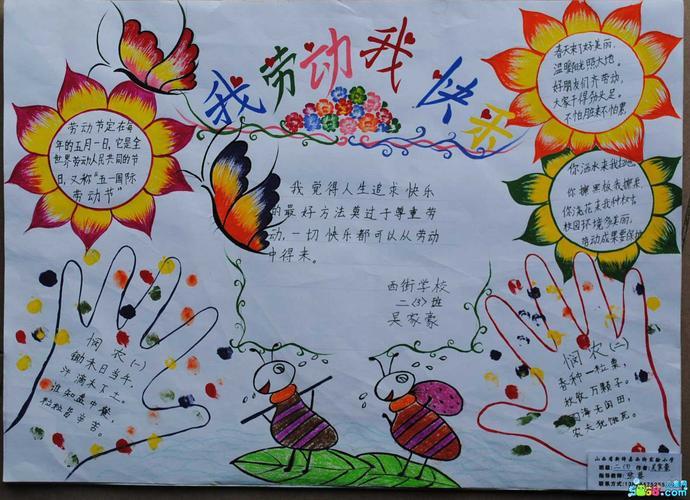 我劳动我快乐
劳动节定在每
年的五月一日,它是全
世界劳动人民共同的节
日,又称“五一国际
劳动节”
春天来了好美丽,
温暖阳光照大地。
好朋友们齐劳动,
大家干得劲头足。
不怕脏来不怕累。
我觉得人生追求快乐
的最好方法莫过于尊重劳
动,一切快乐都可以从劳动
中得来。
西街学校
二〈3〉班
吴家豪
你洒水来我扫地,
你擦黑板我擦桌,
你浇花来我种树
校园环境多美丽,
劳动成果要保护
悯农(一)
锄禾日当午,
汗滴禾下土。
谁知盘中餐,
粒粒皆辛苦。
悯农(二)
春种一粒粟,
秋收万颗子。
四海无闲田,
农夫犹饿死。
班级:二(3) 作者:吴家豪
指导教师:
联系方式: